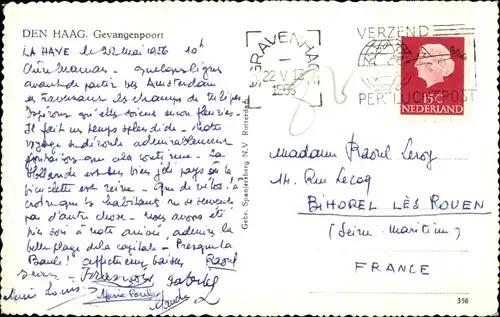 DEN HAAG. Gevangenpoort
LA HAYE le 22 mai 1956 10h
Chère Maman - Quelques lignes
avant de partir vers Amsterdam
en traversant les champs de tulipes
Espérons qu'elles soient en fleuries -
Il fait un temps splendide - Notre
voyage se déroule admirablement
pourvu que cela continue - La
Hollande est un bien joli pays où la
bicyclette est reine - Que de vélos ! à
croire que les habitants ne se servent
pas d'autre chose - Nous avons été
hier soir à notre arrivée, admirer la
belle plage de la capitale - Presque La
Baule ! affectueux baisers Raoul
Françoise Gabriel
Marie Louise Marie Paule
Gebr. Spanjersberg N.V. Rotterdam
'S GRAVENHAGE
22 V 13
1956
VERZEND
PER LUCHTPOST
15C
NEDERLAND
Madame Raoul Leroy
14. Rue Lecoq
BIHOREL LÈS ROUEN
(Seine-Maritime)
FRANCE
356